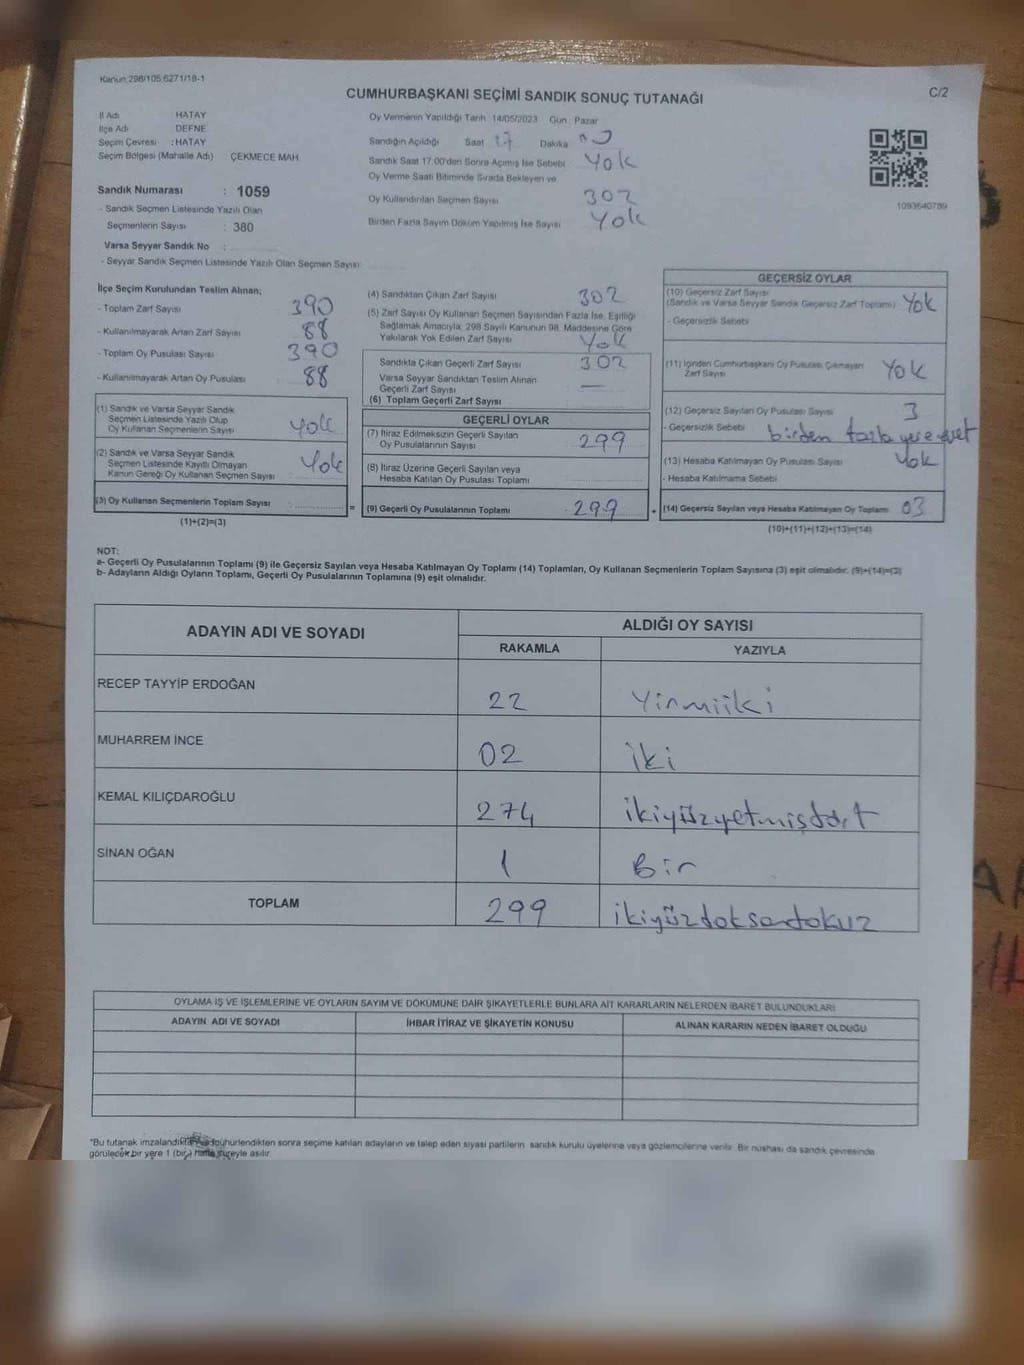 Kanun:298/105,6271/18-1
C/2
CUMHURBAŞKANI SEÇİMİ SANDIK SONUÇ TUTANAĞI
İl Adı HATAY
İlçe Adı DEFNE
Seçim Çevresi : HATAY
Seçim Bölgesi (Mahalle Adı) : ÇEKMECE MAH.
Sandık Numarası : 1059
- Sandık Seçmen Listesinde Yazılı Olan
Seçmenlerin Sayısı : 380
Varsa Seyyar Sandık No :
- Seyyar Sandık Seçmen Listesinde Yazılı Olan Seçmen Sayısı
Oy Vermenin Yapıldığı Tarih : 14/05/2023 Gün : Pazar
Sandığın Açıldığı Saat 17 Dakika
Sandık Saat 17:00'den Sonra Açımış İse Sebebi Yok
Oy Verme Saati Bitiminde Sırada Bekleyen ve
Oy Kullandırılan Seçmen Sayısı 302
Birden Fazla Sayım Döküm Yapılmış İse Sayısı Yok
1093640789
İlçe Seçim Kurulundan Teslim Alınan;
- Toplam Zarf Sayısı 390
- Kullanılmayarak Artan Zarf Sayısı 88
- Toplam Oy Pusulası Sayısı 390
- Kullanılmayarak Artan Oy Pusulası 88
(1) Sandık ve Varsa Seyyar Sandık
Seçmen Listesinde Yazılı Olup
Oy Kullanan Seçmenlerin Sayısı Yok
(2) Sandık ve Varsa Seyyar Sandık
Seçmen Listesinde Kayıtlı Olmayan
Kanun Gereği Oy Kullanan Seçmen Sayısı Yok
(3) Oy Kullanan Seçmenlerin Toplam Sayısı :
=
(1)+(2)=(3)
(4) Sandıktan Çıkan Zarf Sayısı 302
(5) Zarf Sayısı Oy Kullanan Seçmen Sayısından Fazla İse, Eşitliği
Sağlamak Amacıyla, 298 Sayılı Kanunun 98. Maddesine Göre
Yakılarak Yok Edilen Zarf Sayısı Yok
Sandıkta Çıkan Geçerli Zarf Sayısı 302
Varsa Seyyar Sandıktan Teslim Alınan
Geçerli Zarf Sayısı —
(6) Toplam Geçerli Zarf Sayısı
GEÇERLİ OYLAR
(7) İtiraz Edilmeksizin Geçerli Sayılan
Oy Pusulalarının Sayısı 299
(8) İtiraz Üzerine Geçerli Sayılan veya
Hesaba Katılan Oy Pusulası Toplamı
(9) Geçerli Oy Pusulalarının Toplamı 299
+
GEÇERSİZ OYLAR
(10) Geçersiz Zarf Sayısı
(Sandık ve Varsa Seyyar Sandık Geçersiz Zarf Toplamı) Yok
- Geçersizlik Sebebi
(11) İçinden Cumhurbaşkanı Oy Pusulası Çıkmayan
Zarf Sayısı Yok
(12) Geçersiz Sayılan Oy Pusulası Sayısı 3
- Geçersizlik Sebebi birden fazla yere evet
(13) Hesaba Katılmayan Oy Pusulası Sayısı Yok
- Hesaba Katılmama Sebebi
(14) Geçersiz Sayılan veya Hesaba Katılmayan Oy Toplamı 03
(10)+(11)+(12)+(13)=(14)
NOT:
a- Geçerli Oy Pusulalarının Toplamı (9) ile Geçersiz Sayılan veya Hesaba Katılmayan Oy Toplamı (14) Toplamları, Oy Kullanan Seçmenlerin Toplam Sayısına (3) eşit olmalıdır. (9)+(14)=(3)
b- Adayların Aldığı Oyların Toplamı, Geçerli Oy Pusulalarının Toplamına (9) eşit olmalıdır.
ADAYIN ADI VE SOYADI ALDIĞI OY SAYISI
RAKAMLA YAZIYLA
RECEP TAYYİP ERDOĞAN 22 Yirmiiki
MUHARREM İNCE 02 iki
KEMAL KILIÇDAROĞLU 274 ikiyüzyetmişdört
SİNAN OĞAN 1 Bir
TOPLAM 299 ikiyüzdoksandokuz
OYLAMA İŞ VE İŞLEMLERİNE VE OYLARIN SAYIM VE DÖKÜMÜNE DAİR ŞİKAYETLERLE BUNLARA AİT KARARLARIN NELERDEN İBARET BULUNDUKLARI
ADAYIN ADI VE SOYADI İHBAR İTİRAZ VE ŞİKAYETİN KONUSU ALINAN KARARIN NEDEN İBARET OLDUĞU
*Bu tutanak imzalandıktan ve mühürlendikten sonra seçime katılan adayların ve talep eden siyasi partilerin sandık kurulu üyelerine veya gözlemcilerine verilir. Bir nüshası da sandık çevresinde
görülecek bir yere 1 (bir) hafta süreyle asılır.